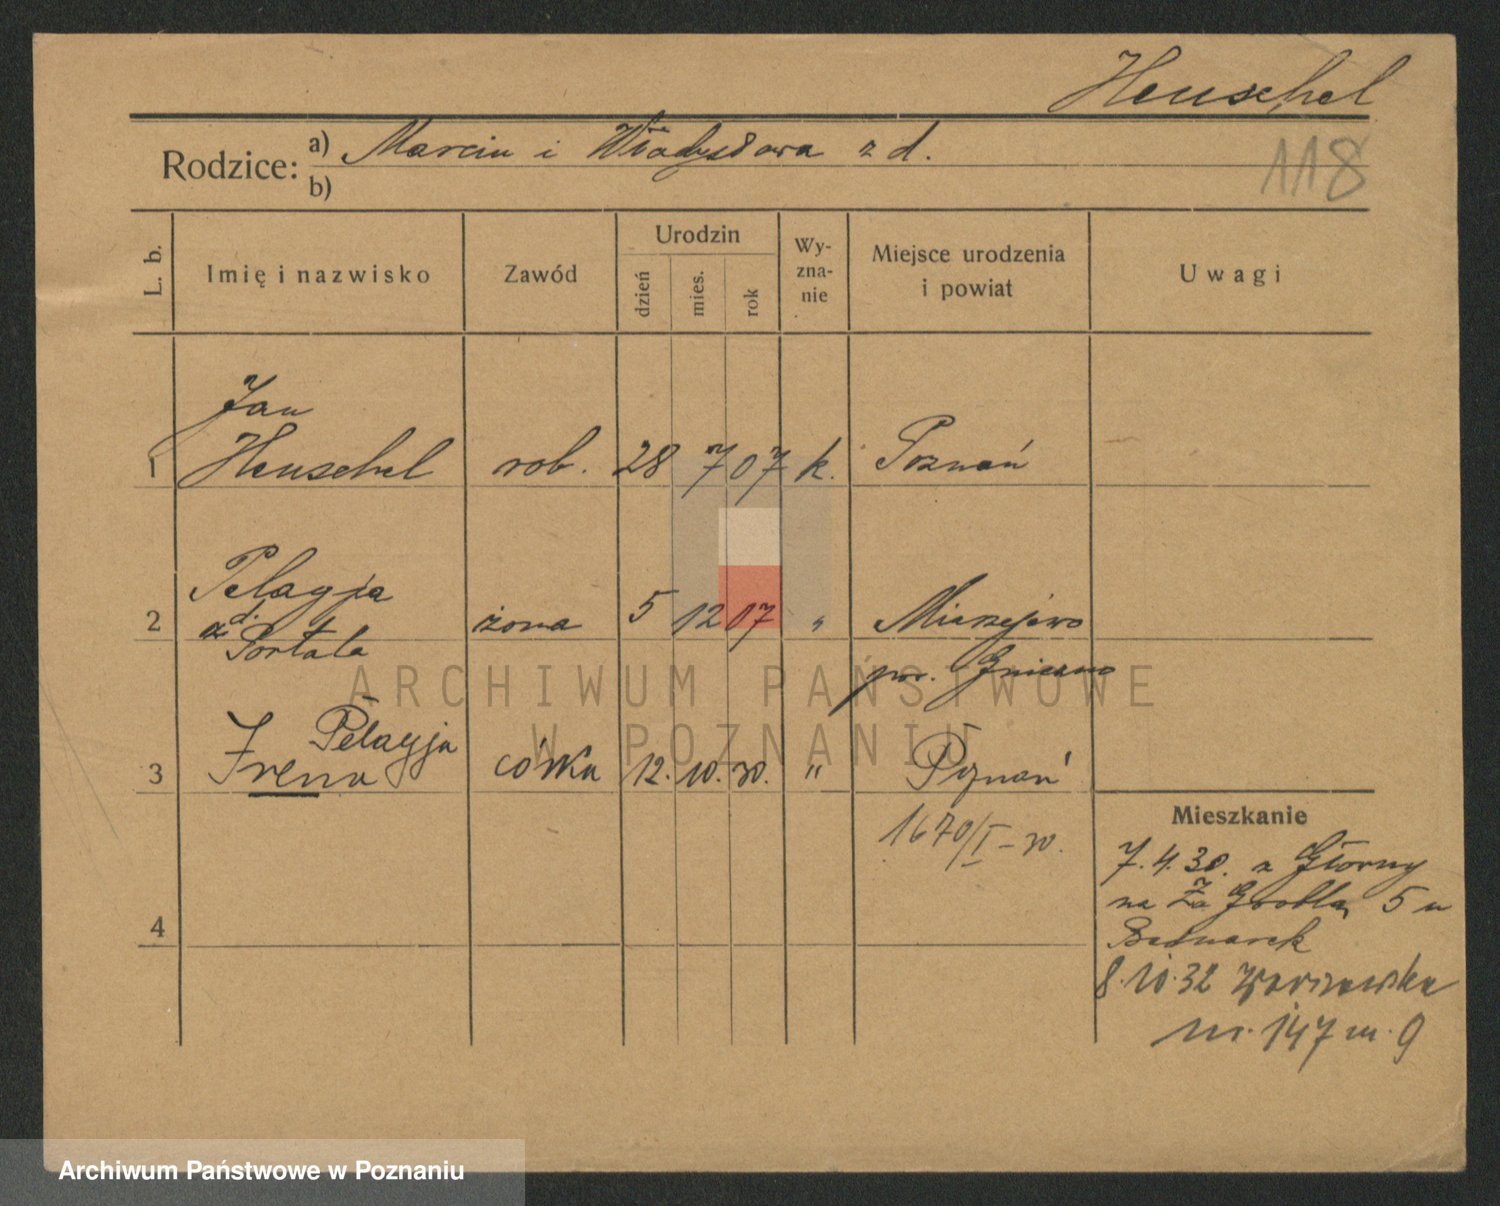 Henschel
118
Rodzice: a) Marcin i Władysława z d.
b)
L. b.
Imię i nazwisko
Zawód
Urodzin
dzień
mies.
rok
Wy-
zna-
nie
Miejsce urodzenia
i powiat
Uwagi
Jan
1 Henschel rob. 28 7 07 k. Poznań
Pelagja
2 z d. żona 5 12 07 „
Portala
pow. Gniezno
Pelagja
3 Irena córka 12. 10. 30. „ Poznań
1670/I-30.
Mieszkanie
7.4.30. z Głorny
na Za Groblą 5 u
4 Bednarek
8.10.32 Warszawska
nr. 147 m. 9
ARCHIWUM PAŃSTWOWE
W POZNANIU
Archiwum Państwowe w Poznaniu